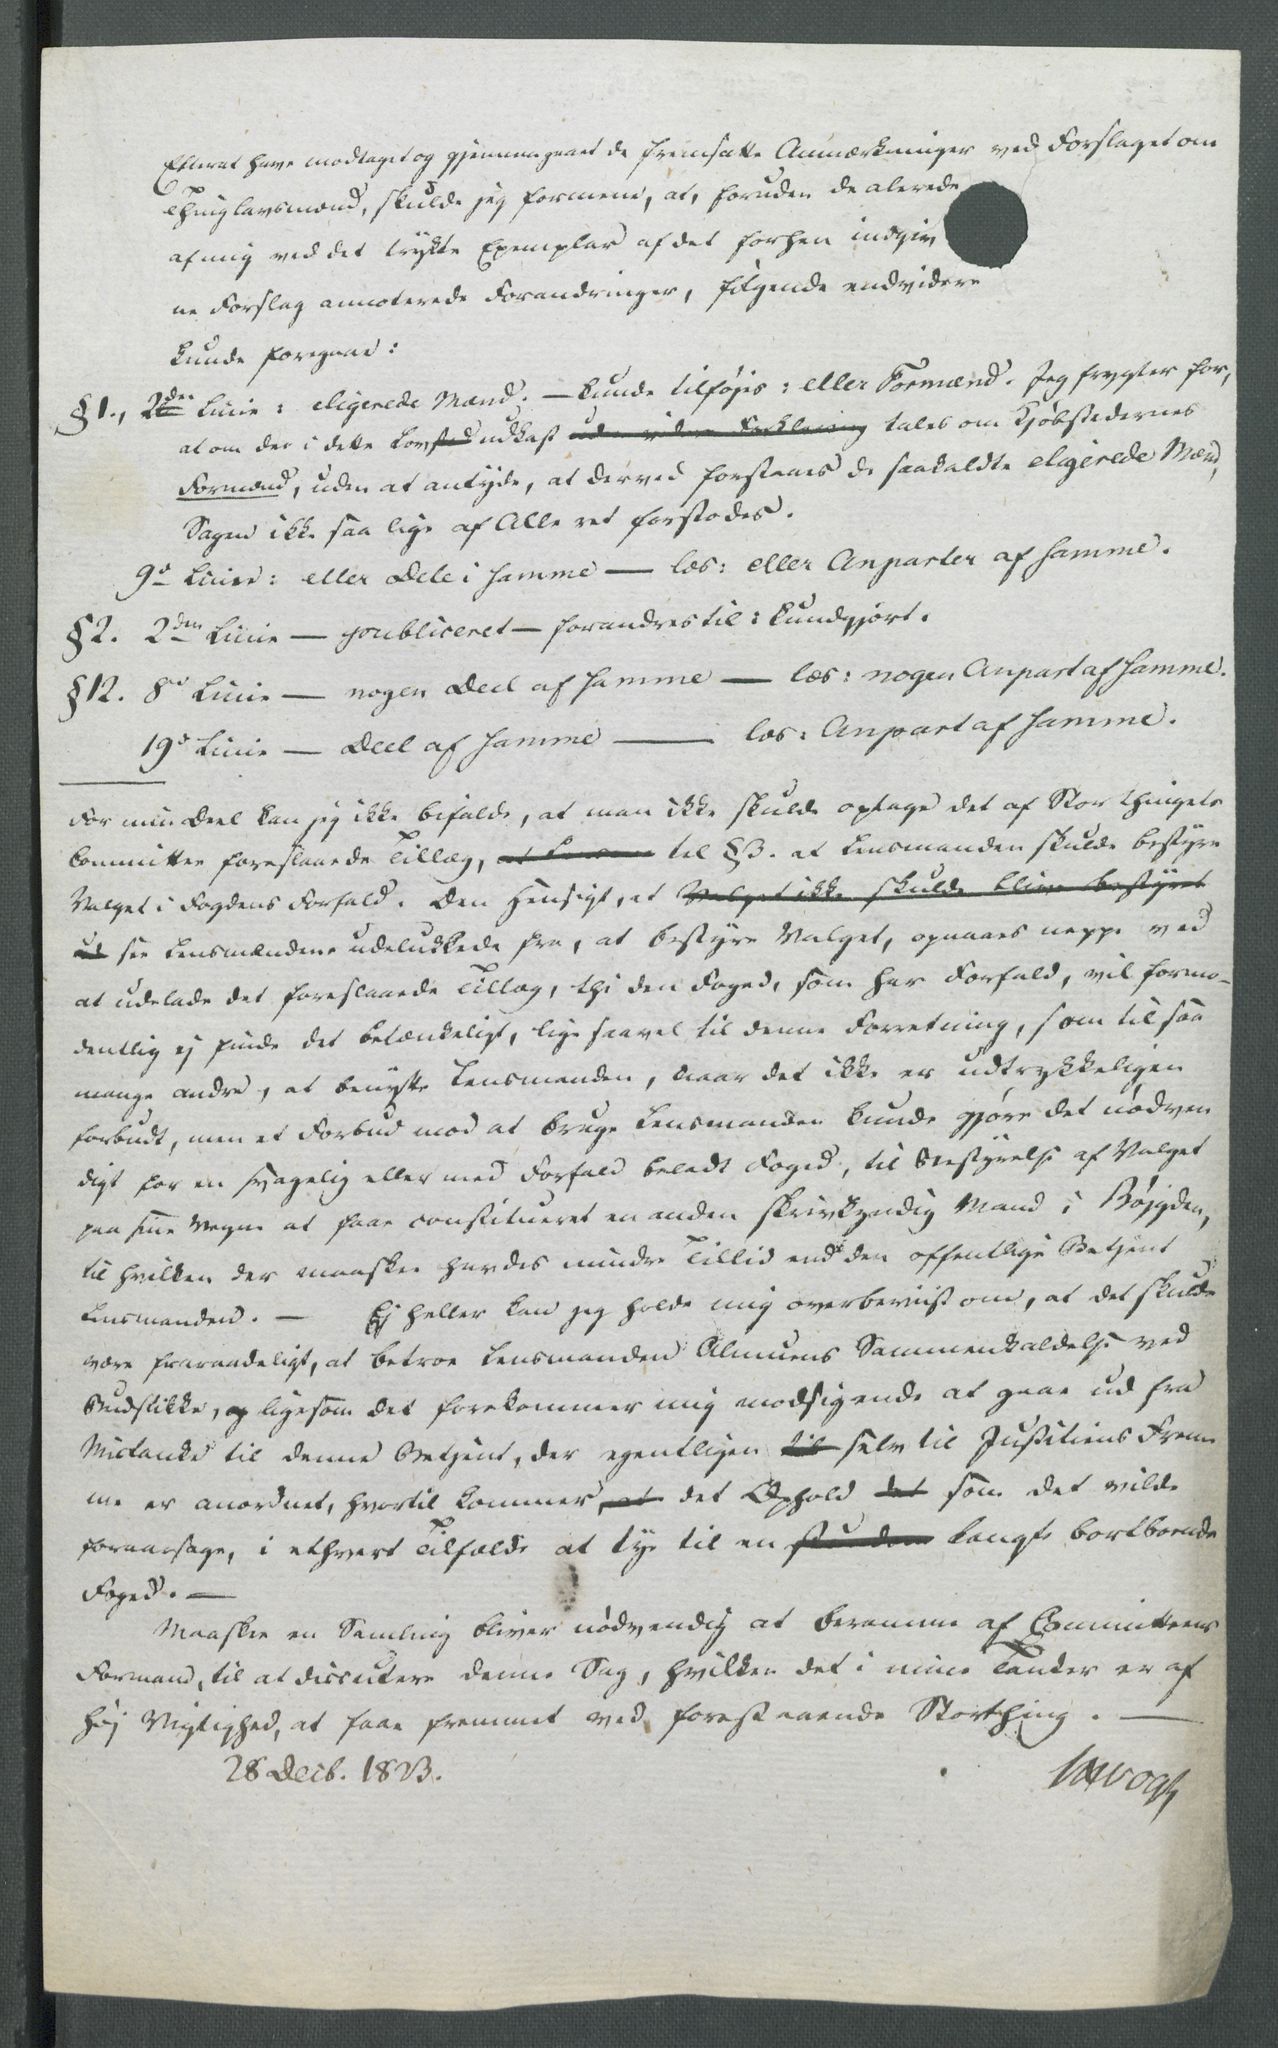 Efterat have modtaget og gjennemgaaet de fremsatte Anmærkninger ved Forslaget om
Thinglavsmænd, skulde jeg formene, at, foruden de alerede
af mig ved det trykte Exemplar af det forhen indgiv
ne Forslag annoterede Forandringer, følgende endvidere
kunde foregaae:
§ 1., 2den Linie: eligerede Mænd. — kunde tilføjes: eller Formænd. Jeg frygter for,
at om der i dette Lovsted udkast uden videre Forklaring tales om Kjøbstædernes
Formænd, uden at antyde, at derved forstaaes de saakaldte eligerede Mænd,
Sagen ikke saa lige af Alle ret forstodes.
9de Linie: eller Dele i samme — læs: eller Anparter af samme.
§ 2. 2den Linie — publiceret — forandres til: kundgjort.
§ 12. 8de Linie — nogen Deel af samme — læs: nogen Anpart af samme.
19de Linie — Deel af samme — læs: Anpart af samme.
For min Deel kan jeg ikke bifalde, at man ikke skulde optage det af Storthingets
Committee foreslaaede Tillæg, til § 3. at Lensmanden skulde bestyre
Valget i Fogdens Forfald. Den Hensigt, at Valget ikke skulde blive bestyret
see Lensmændene udelukkede fra, at bestyre Valget, opnaaes neppe ved
at udelade det foreslaaede Tillæg, thi den Foged, som har Forfald, vil formo-
dentlig ej finde det betænkeligt, lige saavel til denne Forretning, som til saa
mange andre, at benytte Lensmanden, naar det ikke er udtrykkeligen
forbudt, men et Forbud mod at bruge Lensmanden kunde gjøre det nødven
digt for en svagelig eller med Forfald beladt Foged, til Bestyrelse af Valget
paa sine Vegne at faae constitueret en anden skrivkyndig Mand i Bøjgden,
til hvilken der maaskee havdes mindre Tillid end den offentlige Betjent
Lensmanden. — Ej heller kan jeg holde mig overbeviist om, at det skulde
være fraraadeligt, at betroe Lensmanden Almuens Sammenkaldelse ved
Budstikke, og ligesom det forekommer mig modsigende at gaae ud fra
Mistanke til denne Betjent, der egentligen til selv til Justitiens Frem
me er anordnet, hvortil kommer, at det Ophold det som det vilde
foraarsage, i ethvert Tilfælde at tye til en langt bortboende
Foged. —
Maaskee en Samling bliver nødvendig at beramme af Committeens
Formand, til at discutere denne Sag, hvilken det i mine Tanker er af
høj Vigtighed, at faae fremmet ved forestaaende Storthing. —
28 Decb. 1823.